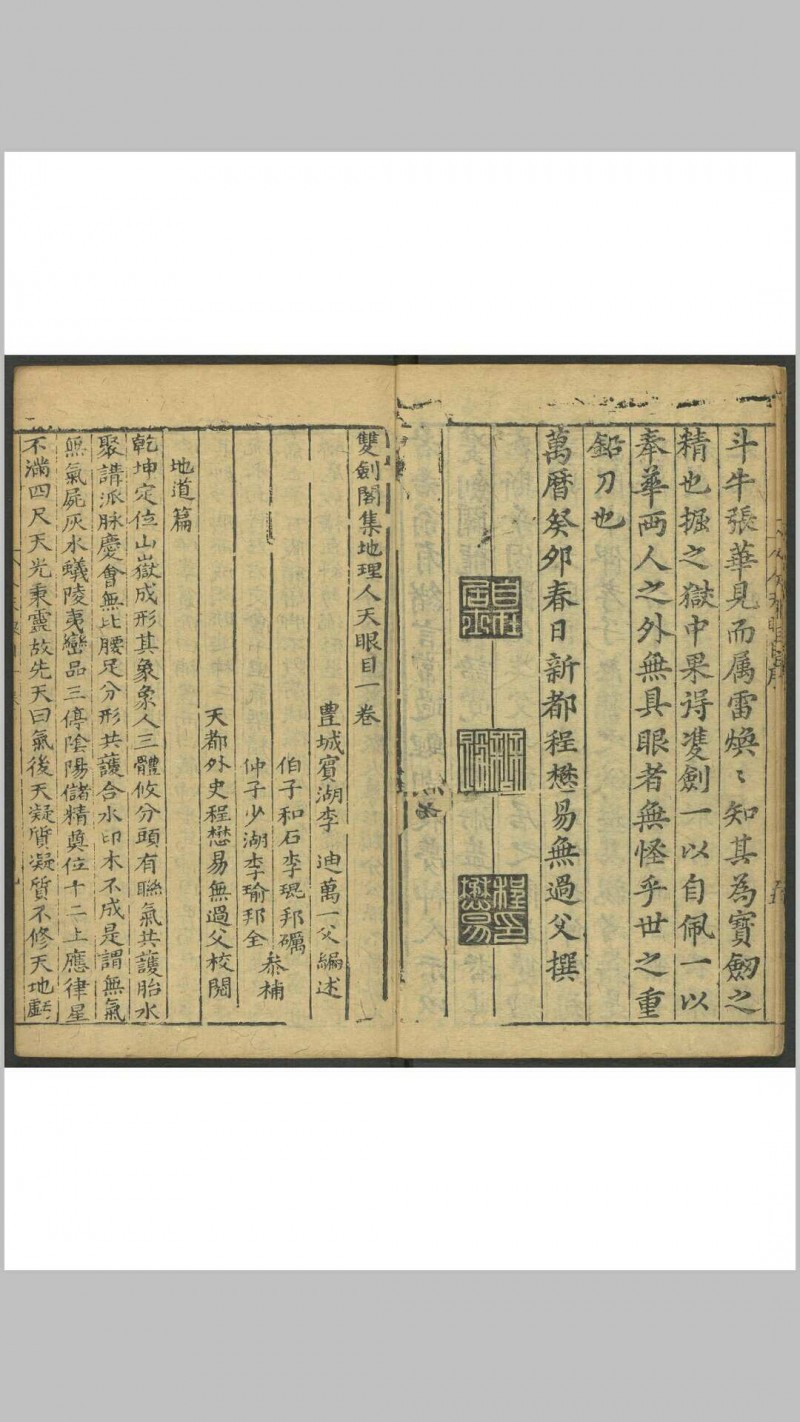 斗牛張華見而属雷煥〻知其為寳劒之
精也掘之獄中果淂䉶劍一以自佩一以
奉華两人之外無具眼者無怪乎世之重
鉛刀也
萬曆癸夘春日新都程懋易無過父撰
程懋易印
雙劍閣集地理人天眼目一卷
豊城賓湖李迪萬一父編述
伯子和石李琨邦礪
仲子少湖李瑜邦全
叅補
天都外史程懋易無過父校閱
地道篇
乾坤定位山嶽成形其象象人三體攸分頭有聮氣共護胎水
聚講派脉慶會無比腰足分形共護合水印木不成是謂無氣
無氣屍灰水蟻陵夷巒品三停隂陽儲精奠位十二上應律星
不滿四尺天光秉靈故先天曰氣後天凝質凝質不修天地虧